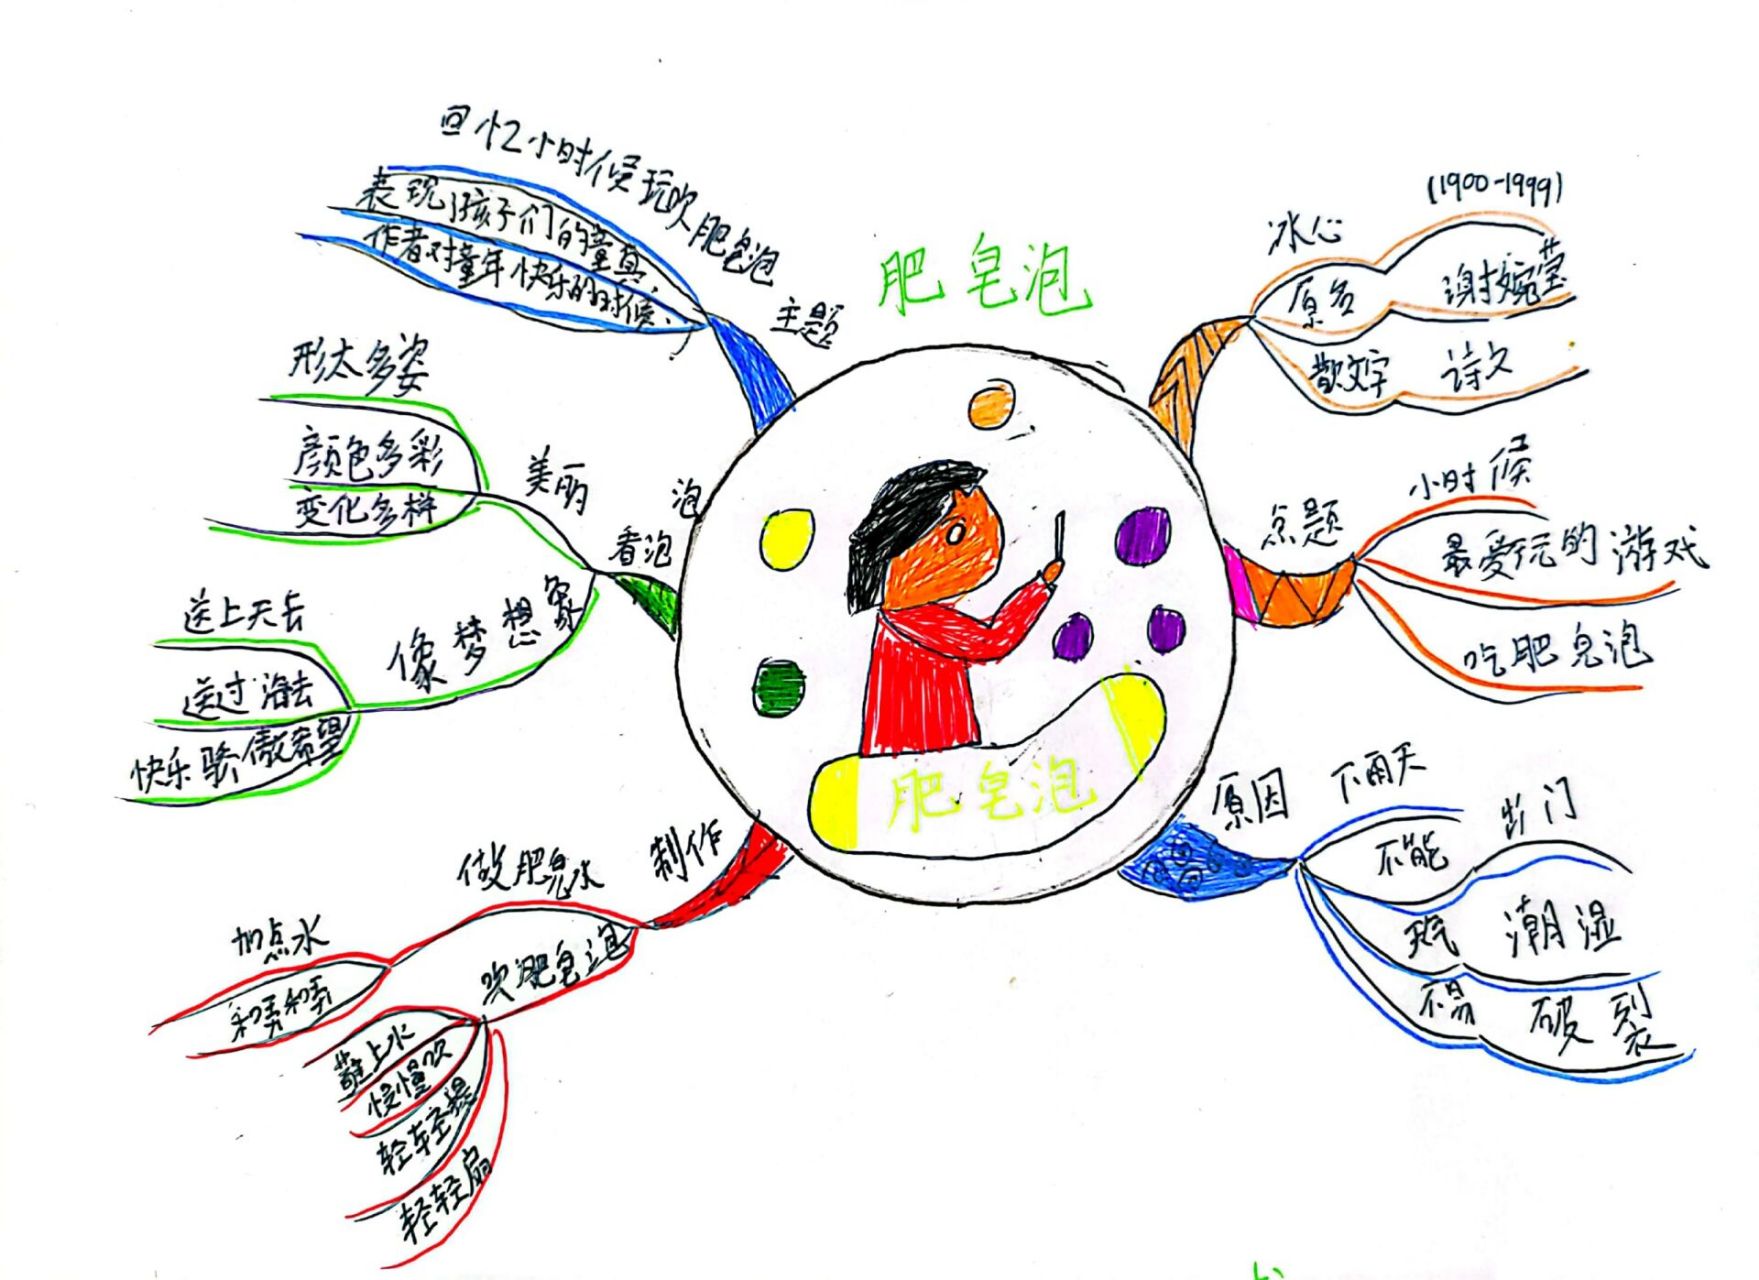 肥皂泡
冰心
(1900-1999)
原名
谢婉莹
散文字
诗文
点题
小时候
最爱玩的游戏
吃肥皂泡
原因
下雨天
不能
出门
潮湿
不易
破裂
制作
做肥皂水
加点水
和弄和弄
吹肥皂泡
蘸上水
慢慢吹
轻轻提
轻轻扇
泡
看泡
美丽
形太多姿
颜色多彩
变化多样
像梦想象
送上天去
送过海去
快乐骄傲希望
主题
回忆小时候玩吹肥皂泡
表现了孩子们的童真、
作者对童年快乐的时候、
肥皂泡